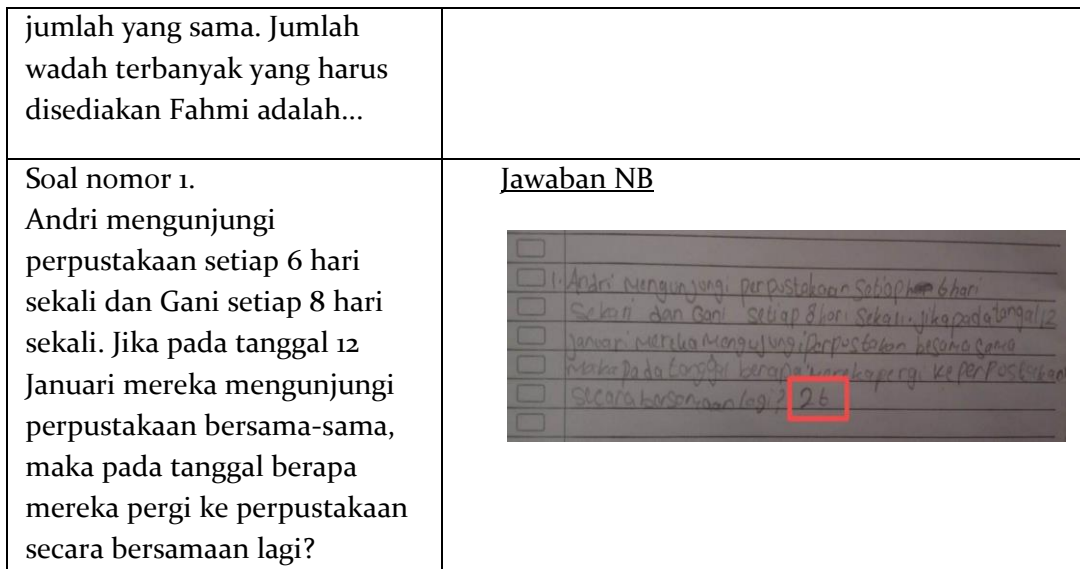 jumlah yang sama. Jumlah
wadah terbanyak yang harus
disediakan Fahmi adalah...
Soal nomor 1.
Andri mengunjungi
perpustakaan setiap 6 hari
sekali dan Gani setiap 8 hari
sekali. Jika pada tanggal 12
Januari mereka mengunjungi
perpustakaan bersama-sama,
maka pada tanggal berapa
mereka pergi ke perpustakaan
secara bersamaan lagi?
Jawaban NB
1. Andri mengunjungi perpustakaan Setiap 6 hari
Sekali dan Gani setiap 8 hari Sekali. Jika pada tanggal 12
Januari mereka
Maka pada tanggal berapa mereka pergi ke
secara bersamaan lagi? 26